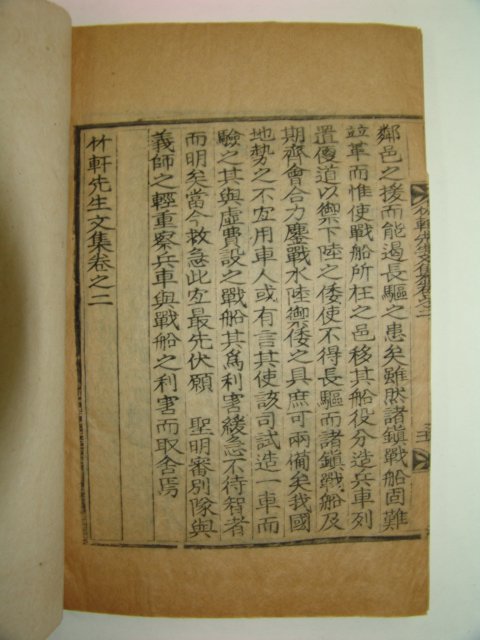 鄰邑之援而能遏長驅之患矣雖然諸鎭戰船固難
竝革而惟使戰船所在之邑移其船役分造兵車列
置傻道以禦下陸之倭使不得長驅而諸鎭戰船及
期齊會合力鏖戰水陸禦倭之具庶可兩備矣我國
地勢之不宜用車人或有言其使該司試造一車而
驗之其與虛費設之戰船其爲利害緩急不待智者
而明矣當今救急此宜最先伏願 聖明審別隊與
義師之輕重察兵車與戰船之利害而取舍焉
竹軒先生文集卷之二
竹軒先生文集卷之二